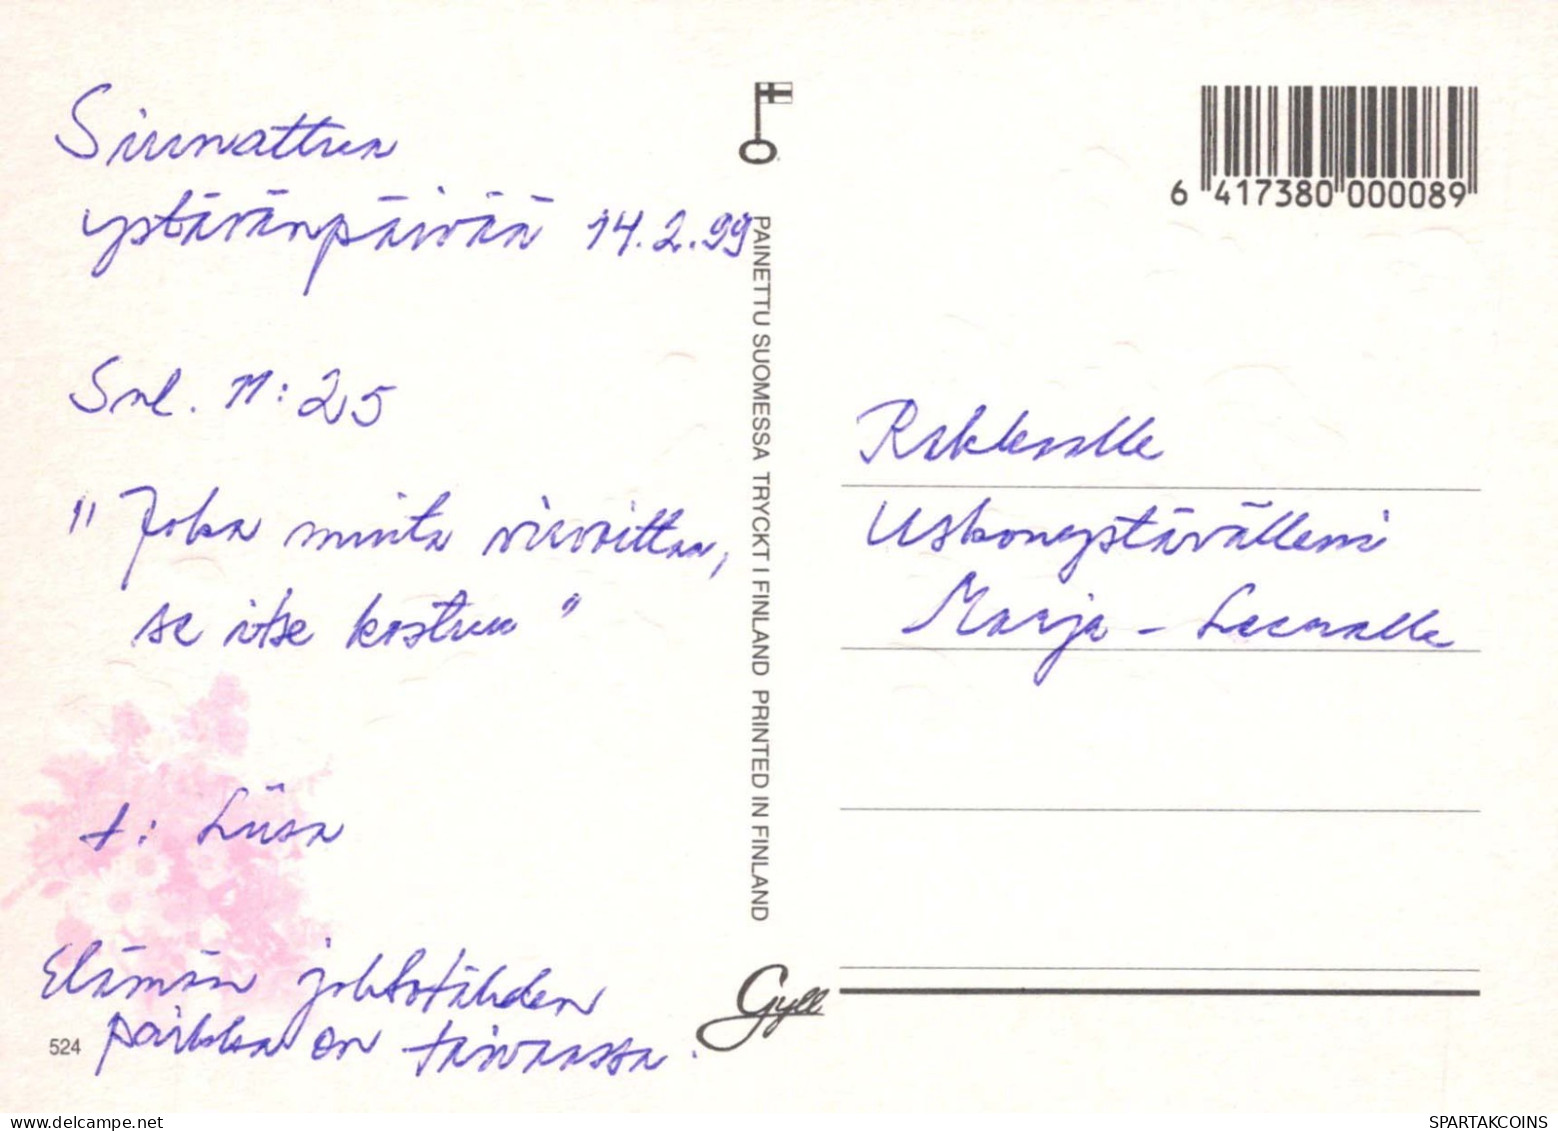 Siunattua
ystävänpäivää 14.2.99
Snl. 11:25
"Joka muita virvoittaa,
se itse kostuu"
t: Liisa
Elämän johtotähden
paikka on taivaassa.
524
PAINETTU SUOMESSA TRYCKT I FINLAND PRINTED IN FINLAND
Gyll
6 417380 000089
Rakkaalle
Uskonystävälleni
Marja - Leenalle
SPARTAKCOINS